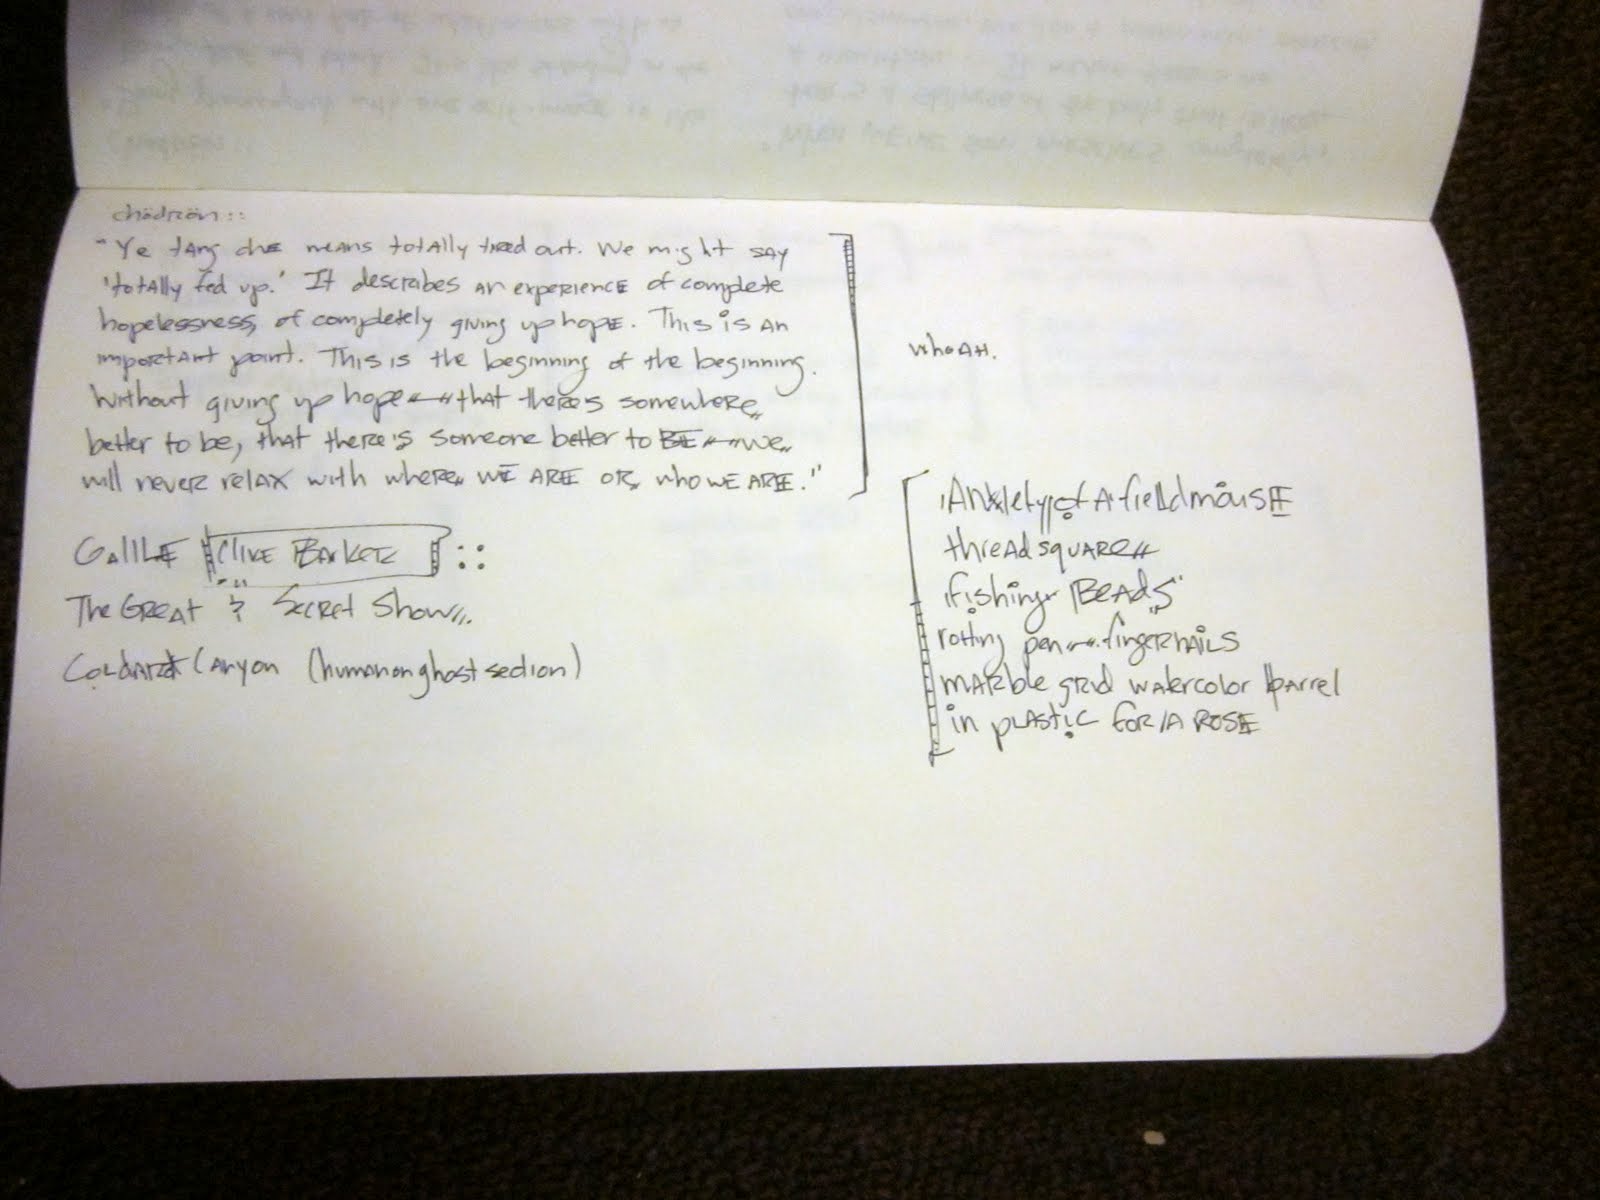 chödrön::
"Ye tang che means totally tired out. We might say
'totally fed up.' It describes an experience of complete
hopelessness, of completely giving up hope. This is an
important point. This is the beginning of the beginning.
Without giving up hope—that there's somewhere
better to be, that there's someone better to BE—we
will never relax with where WE ARE or who WE ARE."
whoAH.
GAlilE [Clive Barker] ::
The Great & Secret Show
Coldheart Canyon (human on ghost sedion)
Anxiety of A fieldmousE
threAd squARe
fishing BeAds
rotting pen fingernAils
mARble grid watercolor barrel
in plAstic for/A rosE